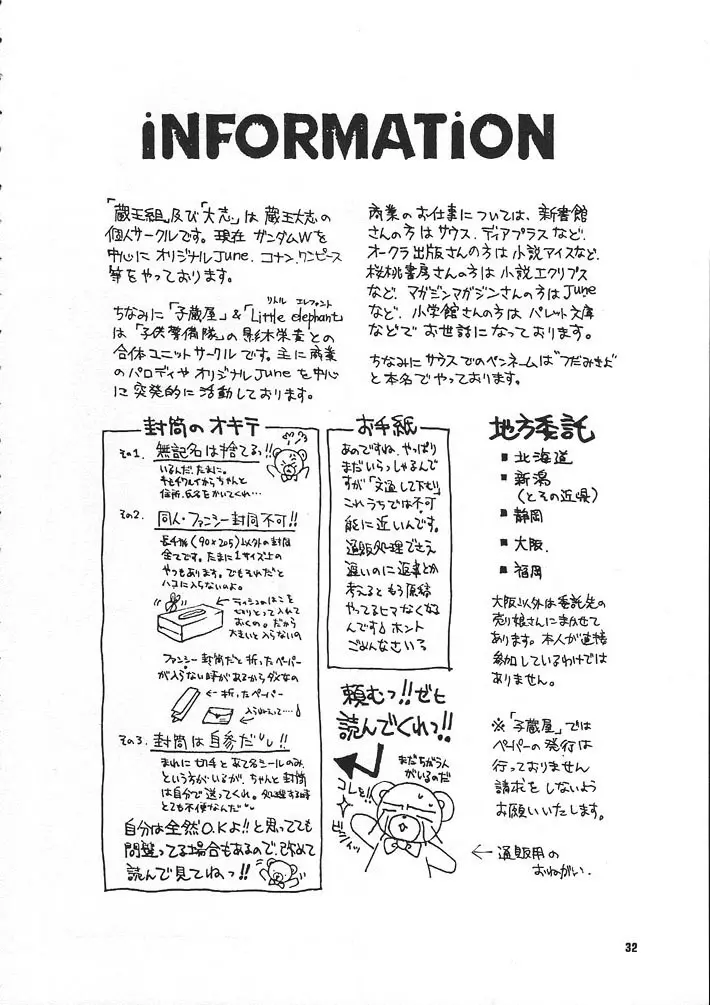 iNFORMATiON
「蔵王組」及び「大志」は 蔵王大志の
個人サークルです。現在 ガンダムWを
中心に オリジナルJune、コナン、ワンピース
等をやっております。
リトル エレファント
ちなみに「子蔵屋」&「Little elephant」
は「子供警備隊」の影木栄貴との
合体ユニットサークルです。主に商業
のパロディや オリジナルJuneを中心
に 突発的に 活動しております。
商業のお仕事については、新書館
さんの方は サウス、ディアプラス など、
オークラ出版さんの方は 小説アイスなど、
桜桃書房さんの方は 小説エクリプス
など、マガジンマガジンさんの方は June
など、小学館さんの方は パレット文庫
などで お世話になっております。
ちなみに サウスでのペンネームは"つだみきよ"
と本名でやっております。
封筒のオキテ
その1. 無記名は捨てるっ!!
いるんだ、たまに。
キモチワルイからちゃんと
住所、氏名をかいてくれ…
その2. 同人・ファンシー封筒不可!!
長4形(90×205)以外の封筒
全てです。たまに1サイズ上の
やつもあります。でもそれだと
ハコに入らないのよ。
← ティッシュのはこを
とりとって入れて
おくの。だから
大きいと入らないの
ファンシー封筒だと 折ったペーパー
が入らない時があるからダメなの
← 折ったペーパー
その3. 封筒は自参だ!!
まれに 切手と あて名シールのみ、
という方がいるが、ちゃんと封筒
は自分で送ってくれ。処理する時
とても不便なんだ
自分は全然O.Kよ!!と思ってても
間違ってる場合もあるので、改めて
読んで見てねっ!!
お手紙
あのですね、やっぱり
まだいらっしゃるんで
すが「文通して下さい」
これうちでは不可
能に近いんです。
通販処理でさえ
遅いのに返事とか
考えるともう原稿
やってるヒマなくなる
んです ホント
ごめんなさい
頼むっ!!ゼヒ
読んでくれっ!!
まだちがう人
がいるのだ
コレを!!
ビシィッ
← 通販用の
おねがい.
地方委託
■ 北海道
■ 新潟
(とその近県)
■ 静岡
■ 大阪.
■ 福岡
大阪以外は委託先の
売り娘さんにまかせて
あります。本人が直接
参加しているわけでは
ありません。
※「子蔵屋」では
ペーパーの発行は
行っておりません
請求をしないよう
お願いいたします。
32